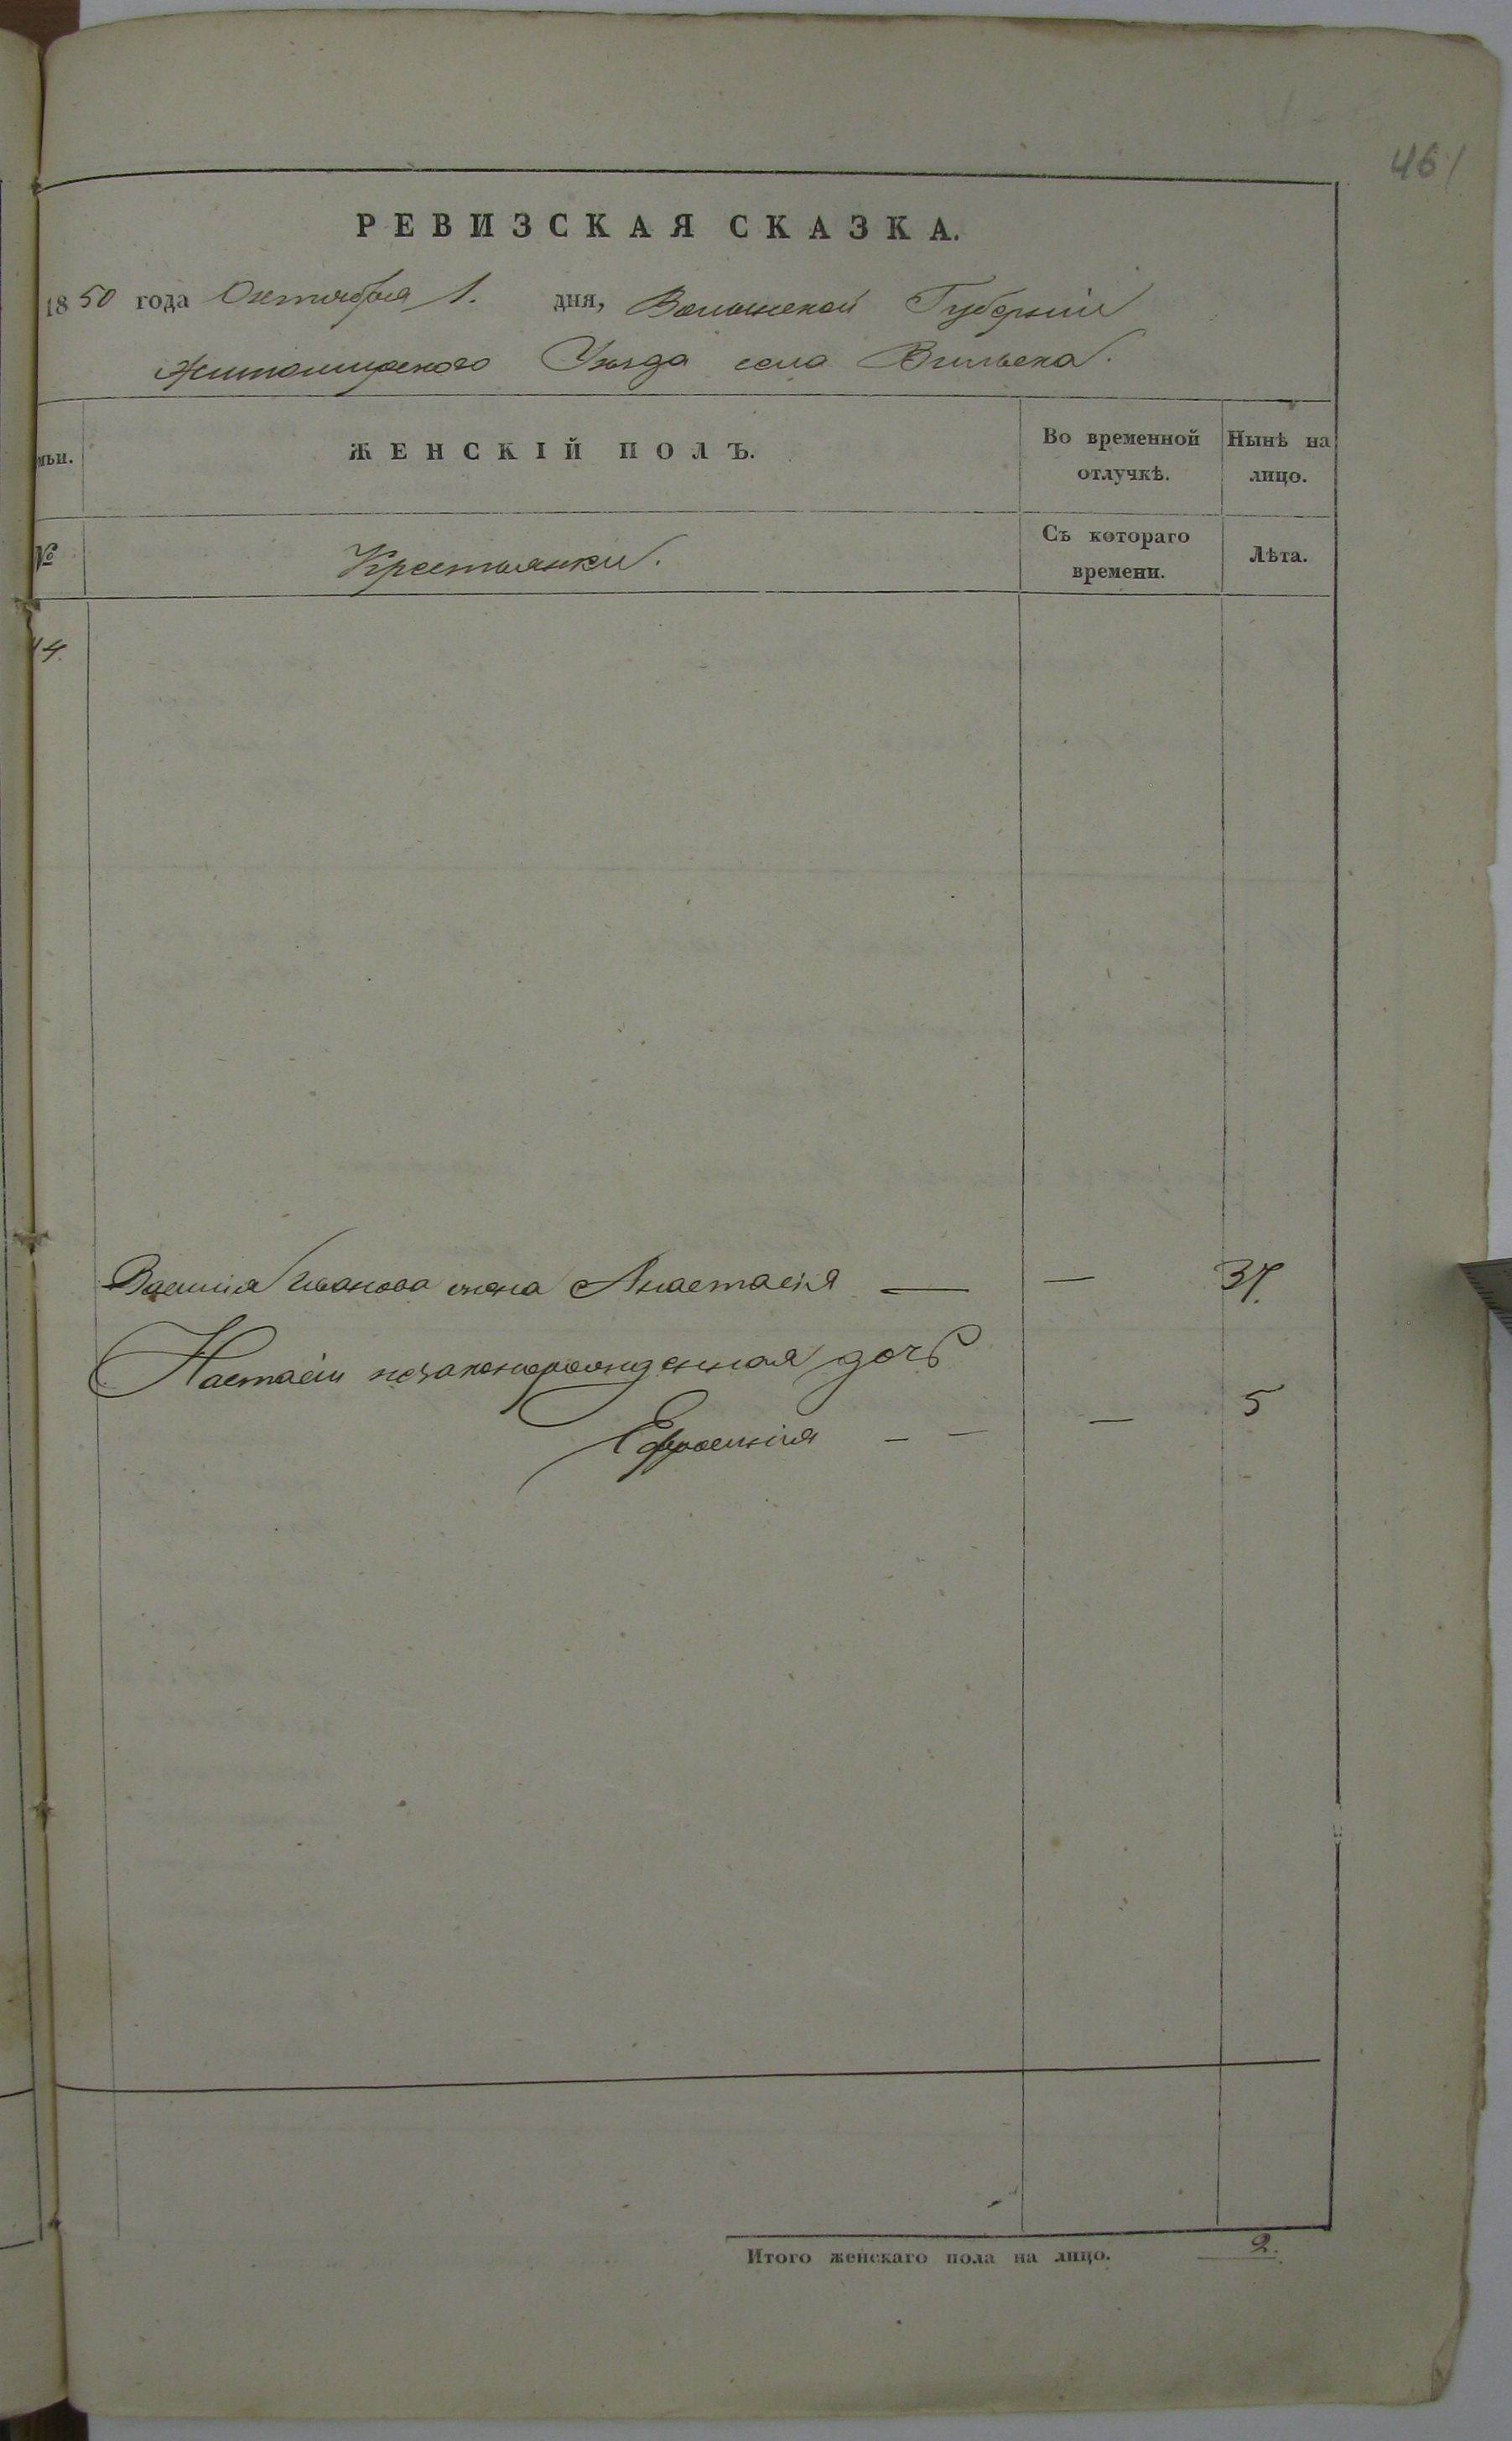 461
РЕВИЗСКАЯ СКАЗКА.
1850 года Октября 1. дня, Волынской Губерніи
Житомирского Уѣзда села Вильска.
мьи. ЖЕНСКІЙ ПОЛЪ. Во временной отлучкѣ. Нынѣ на лицо.
№ Крестьянки. Съ котораго времени. Лѣта.
14.
Василія Иванова жена Анастасія — — 37.
Настасіи незаконорожденная дочь
Ефросинія — — — 5
Итого женскаго пола на лицо. 2.